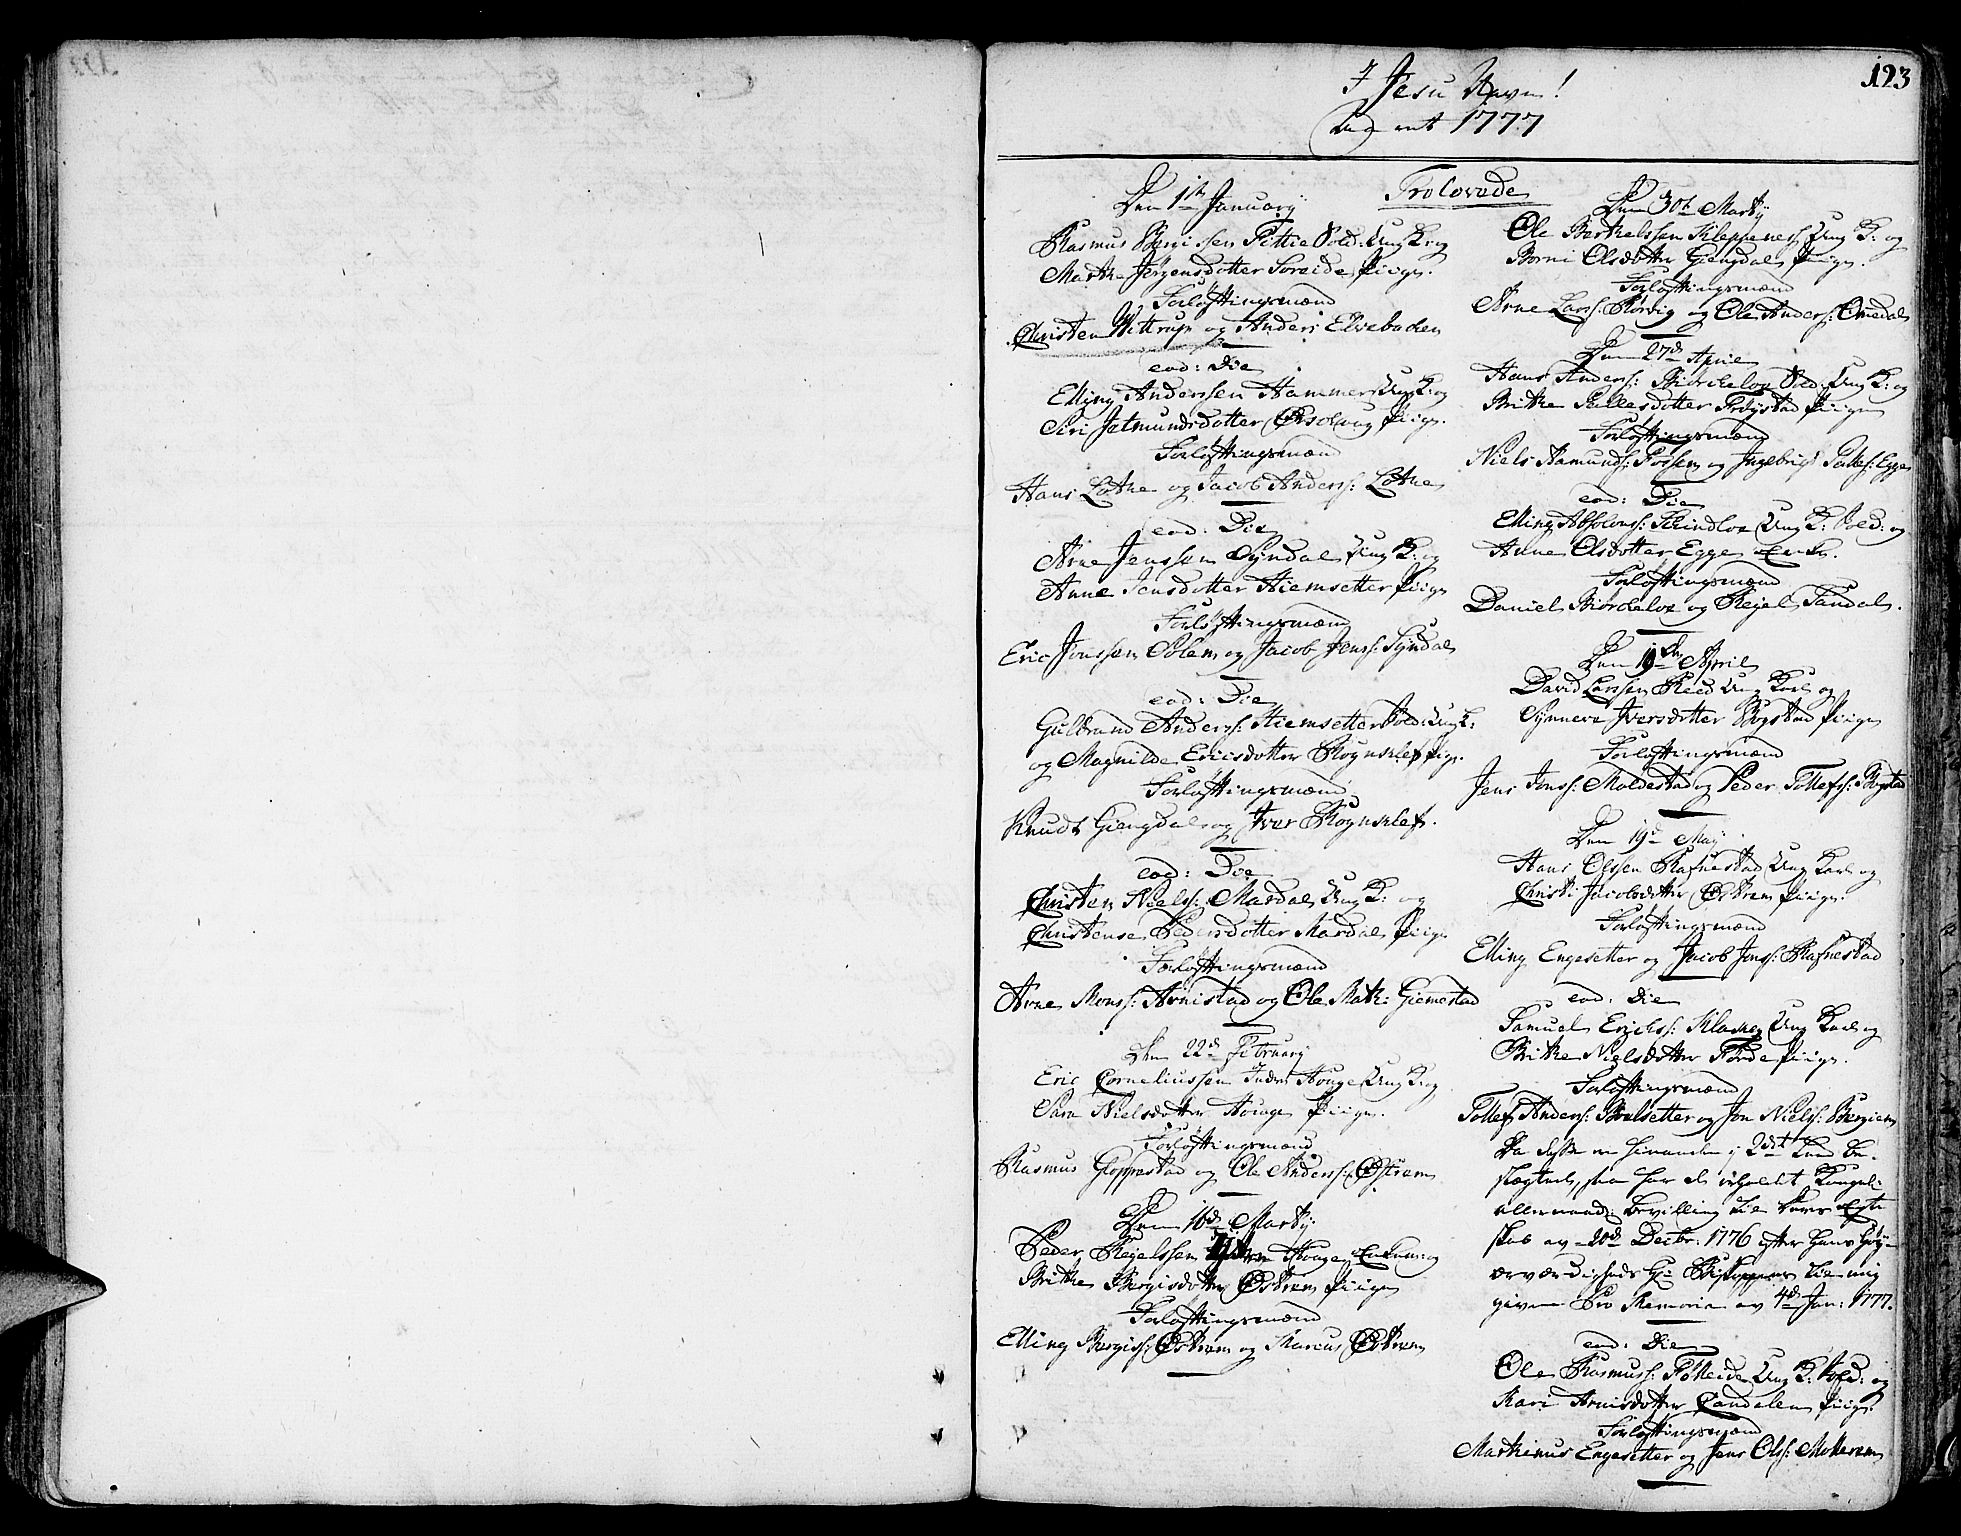 123
I Jesu Navn!
1777
Trolovede
Den 1te January
Rasmus Børgissen Tittie Sold: Ung K: og
Marthe Jørgensdotter Soreide Piige.
Forløftingsmænd
Christen Wittrup og Anders Elvebachen
eod: Die
Elling Anderssen Hammer Ung K: og
Siri Jetmundsdotter Orsolvug Piige.
Forløftingsmænd
Hans Løthe og Jacob Anderss: Løthe
eod: Die
Arne Jenssen Syndal Ung K: og
Anne Jensdotter Hiemsetter Piige
Forløftingsmænd
Eric Jonssen Solem og Jacob Jenss: Syndal
eod: Die
Guldrand Anderss: Hiemsetter Sold: Ung K:
og Magnilde Ericsdotter Røynslef Pige.
Forløftingsmænd
Knudt Giengdal og Iver Røynslef.
eod: Die
Christen Nielss: Mardal Ung K: og
Christense Pedersdotter Mardal Piige
Forløftingsmænd
Arne Monss: Arnistad og Ole Math: Giemestad
Den 22de February
Eric Corneliussen Indre Houge Ung K: og
Sara Nielsdotter Houge Piige.
Forløftingsmænd
Rasmus Gloppestad og Ole Anderss: Østrem
Den 16de Martij
Peder Regelssen Houge Enkem: og
Brithe Børgisdotter Østrem Piige
Forløftingsmænd
Elling Børgiss: Østrem og Marcus Østrem
Den 30te Martij
Ole Berthelssen Kleppenes Ung K: og
Borni Olsdotter Giengdal Piige.
Forløftingsmænd
Arne Larss: Rørvig og Ole Anderss: Omedal
Den 27de April
Hans Anderss: Biørcheloe Sold: Ung K: og
Brithe Pallesdotter Frøystad Piige
Forløftingsmænd
Niels Aamunds: Fossem og Ingebrigt Palles: Egge
eod: Die
Elling Absolons: Skindloe Ung K: Sold: og
Anne Olsdotter Egge Enke.
Forløftingsmænd
Daniel Biørcheloe og Regel Sandal.
Den 19de April
David Larssen Reed Ung Karl og
Synneve Iversdotter Rygstad Piige
Forløftingsmænd
Jens Jonss: Moldestad og Peder Tollefss: Rygstad
Den 19de Maij
Hans Olssen Rafnestad Ung Karl og
Christi Jacobsdotter Østrem Piige.
Forløftingsmænd
Elling Engesetter og Jacob Jons: Rafnestad
eod: Die
Samuel Erichss: Klaseg Ung Karl og
Brithe Nielsdotter Førde Piige.
Forløftingsmænd
Tollef Anderss: Stralsetter og Jon Nielss: Bergiem
Da disse ere hinanden i 2det Led be-
slægtede, saa har de erholdt Kongel:
allernaad: bevilling til deres Egte
skab av 20de Decbr: 1776 efter Hans Høy-
ærværdigheds Hr Biskoppens til mig
givne Pro Memoria av 4de Jan: 1777.
eod: Die
Ole Rasmuss: Totteide Ung K: Sold: og
Kari Arnisdotter Sandalen Piige.
Forløftingsmænd
Mathinus Engesetter og Jens Olss: Mollerem